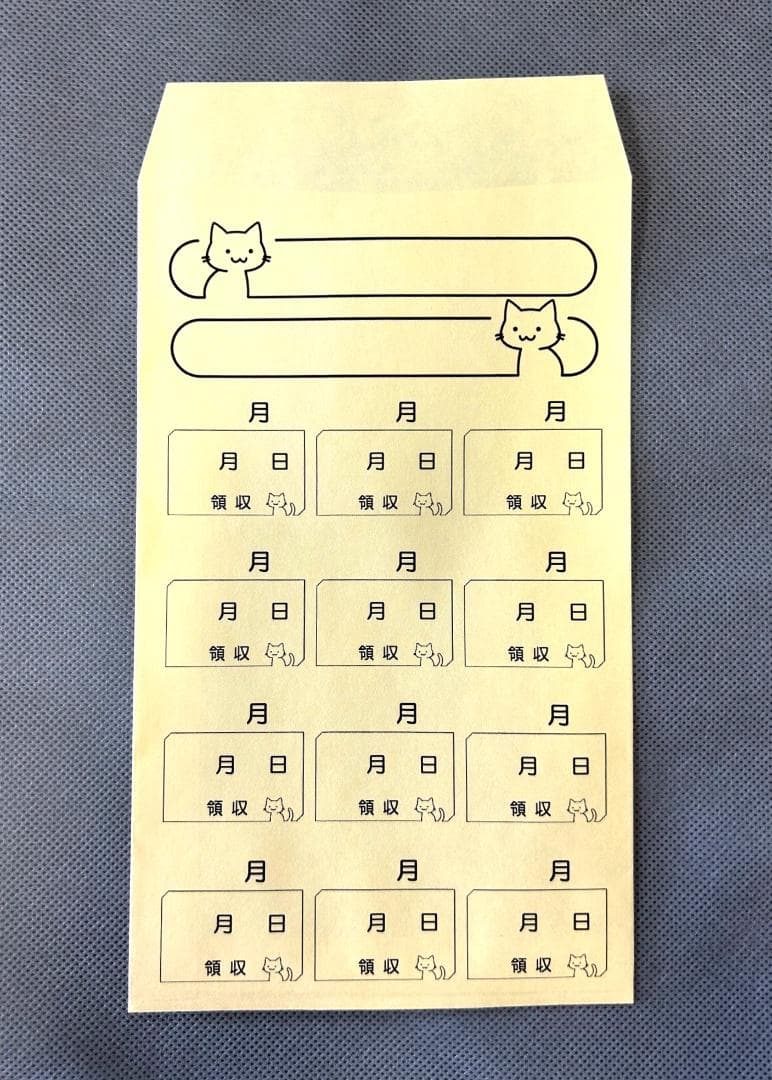 月 月 月
月 日 月 日 月 日
領収 領収 領収
月 月 月
月 日 月 日 月 日
領収 領収 領収
月 月 月
月 日 月 日 月 日
領収 領収 領収
月 月 月
月 日 月 日 月 日
領収 領収 領収